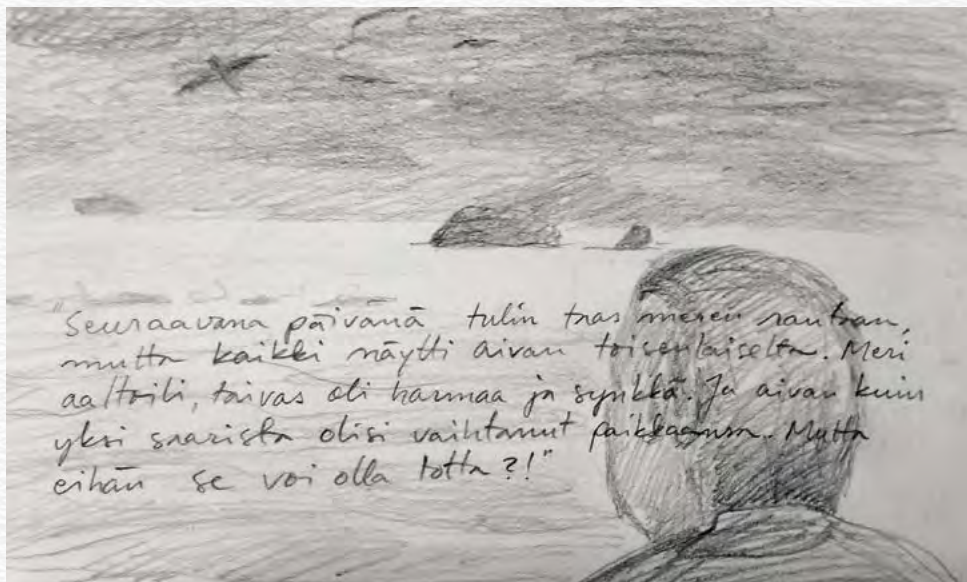 "Seuraavana päivänä tulin taas meren rantaan,
mutta kaikki näytti aivan toisenlaiselta. Meri
aaltoili, taivas oli harmaa ja synkkä. Ja aivan kuin
yksi saarista olisi vaihtanut paikkaansa. Mutta
eihän se voi olla totta?!"